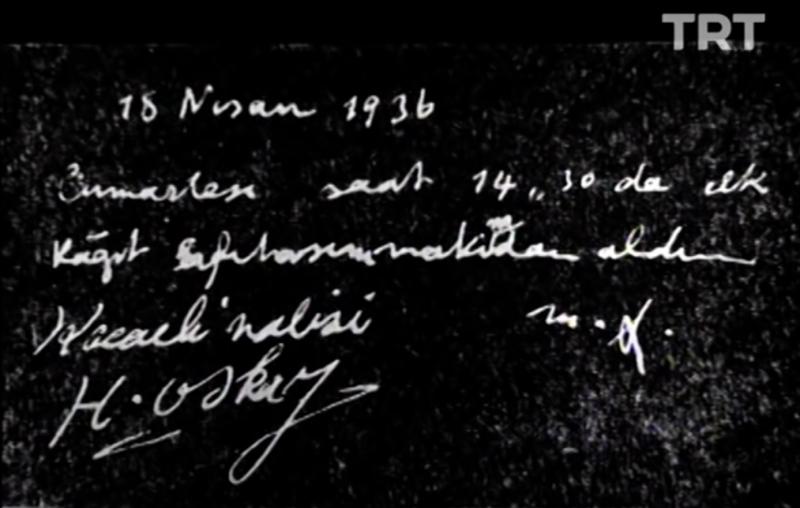 TRT
18 Nisan 1936
Cumartesi saat 14,,30 da ilk
Kâgıt safihasını makinadan aldım
Kocaeli valisi
m.
H. Oskay